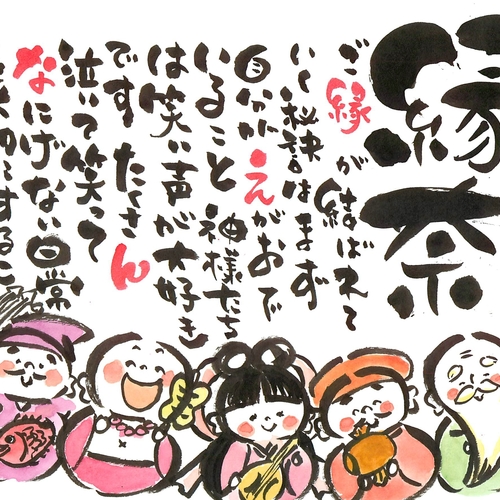 縁奈
ご縁が結ばれて
いく秘訣はまず
自分がえがおで
いること神様たち
は笑い声が大好き
ですたくさん
泣いて笑って
なにげない日常